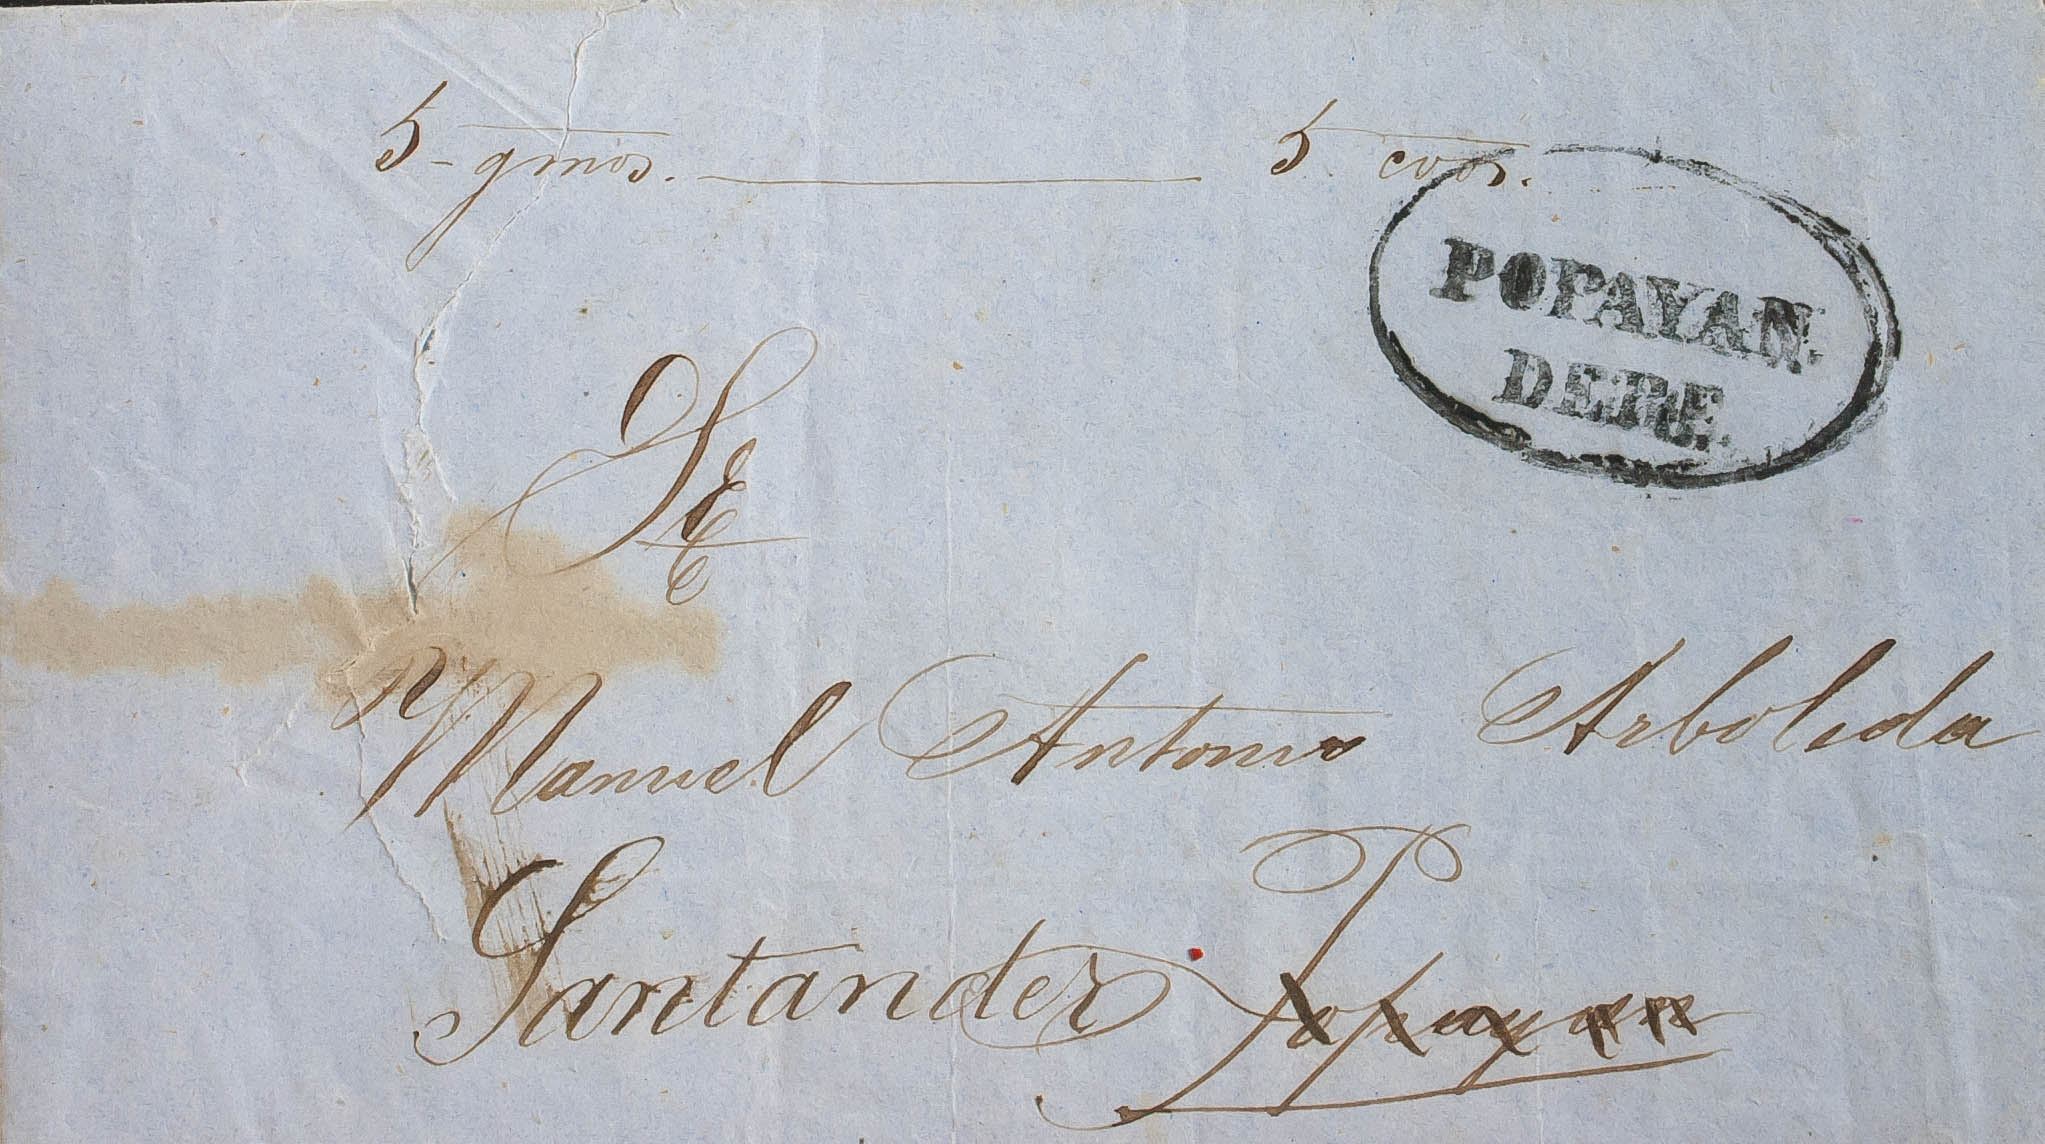 5 - gmos. 5 cvos.
POPAYAN.
DEBE.
Sr
Manuel Antonio Arboleda
Santander Popayan